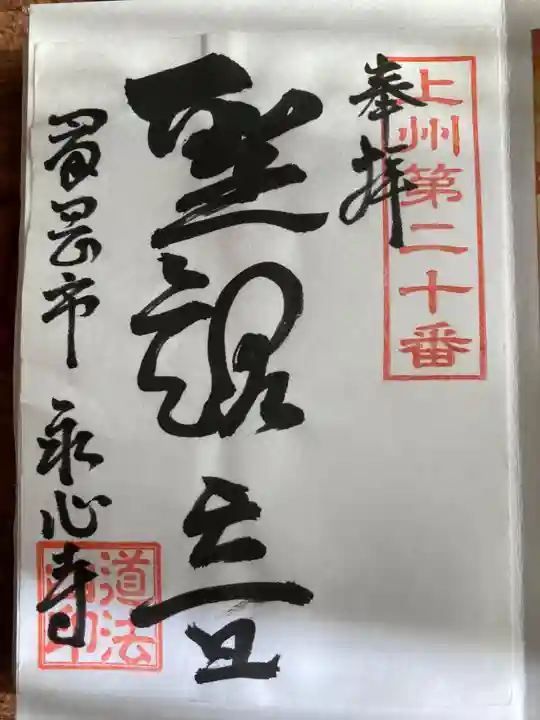 上州第二十番
奉拝
聖観音
富岡市 永心寺
道法
印